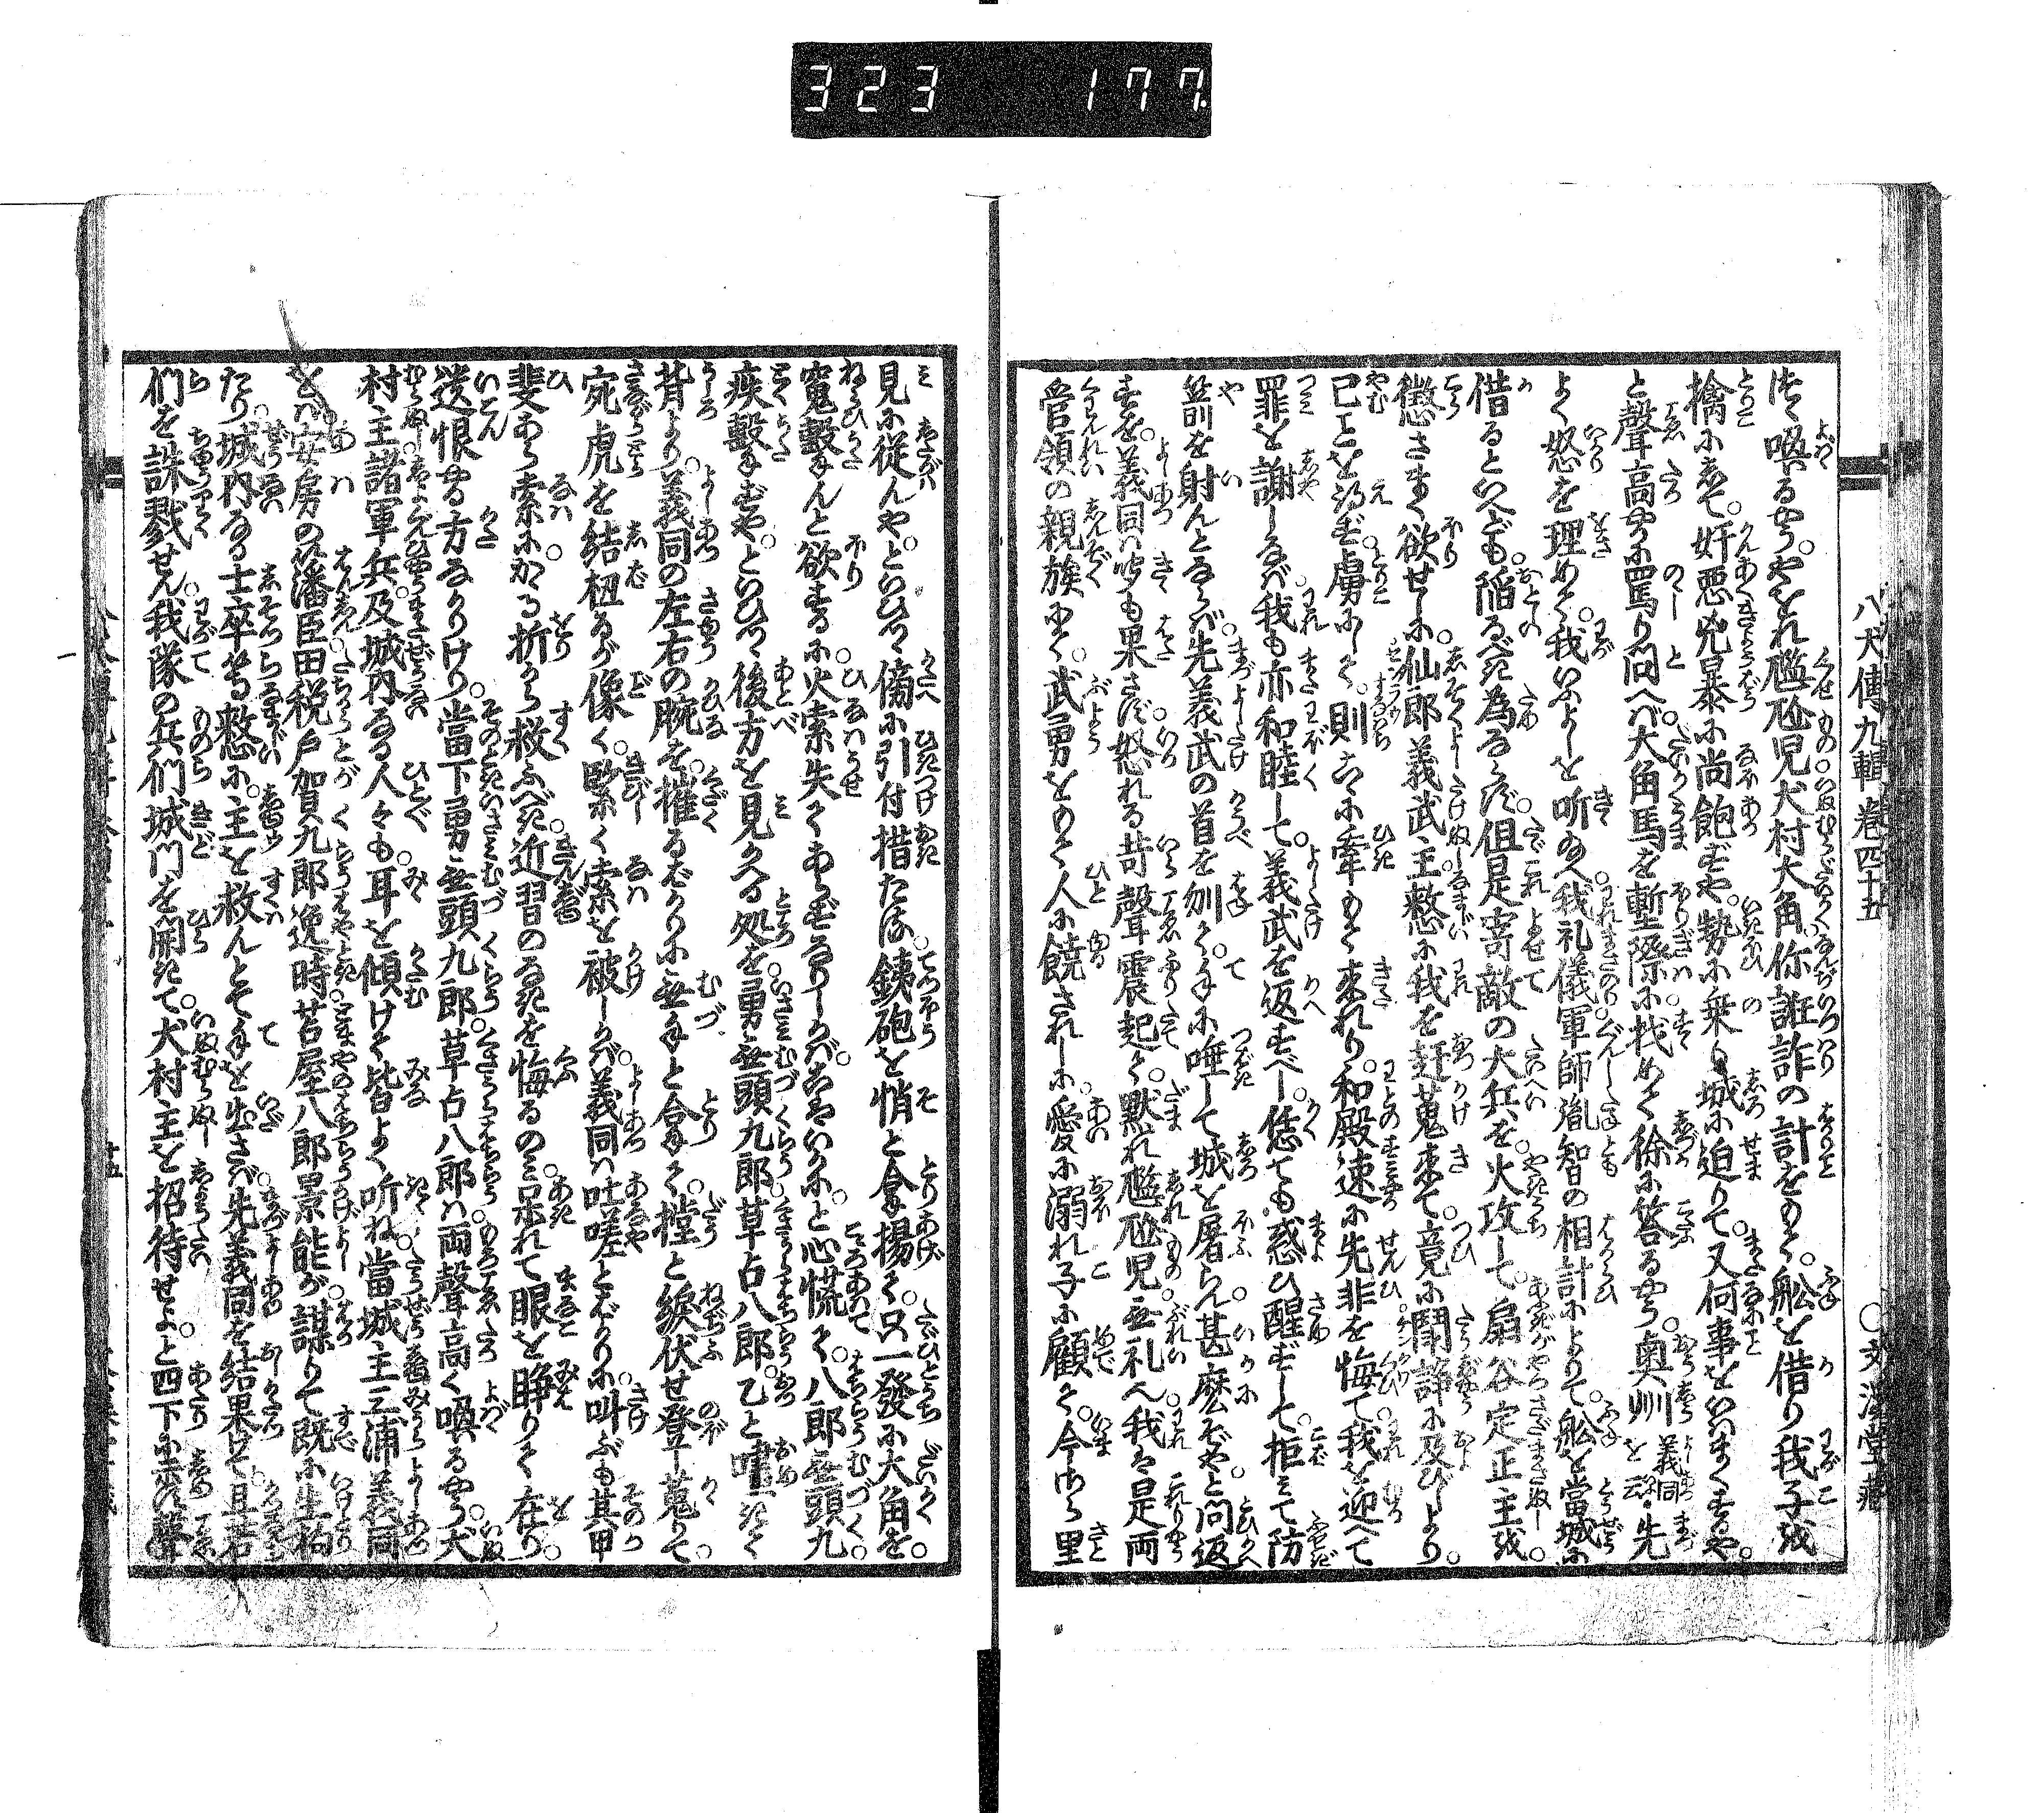 323 177
八犬傳九輯卷四十五
○文溪堂藏
つゝ喚るやう。やをれ尶尬児犬村大角。你誑詐の計をもて。舩を借り我子を
擒にして。奸惡兇暴に尚飽ずや。勢に乗り城に迫りて。又何事をいはまくするや。
と聲高やかに罵り問へば。大角馬を塹際に找めて徐に答るやう。奥州義同を云。先
よく怒を理めて。我いふよしを听ね。我礼儀軍師胤智の相計によりて。舩を當城に
借るといへども。稲るべき為ならず。但是寄敵の大兵を。火攻して。扇谷定正主を
懲さまく欲せしに。仙郎義武主憖に我を赶蒐来て。竟に鬪諍に及びしより。
已ことを得ず虜にして。則こゝに牽もて来れり。和殿速に先非を悔て我を迎へて
罪を謝しなば我も亦和睦して。義武を返すべし。恁ても惑ひ醒ずして。拒て防
箭を射んとならば。先義武の首を刎て。手に唾して城を屠らん。甚麽ぞやと問返
すを。義同は听も果さず怒れる苛聲震起て。黙れ尶尬児無礼也。我は是両
管領の親族にて。武勇をもて人に饒されしに。愛に溺れ子に顧て。今さら里
見に従んや。といひつゝ傍に引付措たる。銕砲を悄と拿揚て。只一發に大角を。
窺撃んと欲するに。火索失てあらずなりしかば。こはいかに。と心慌て。八郎無頭九
疾撃ずや。といひつゝ後方を見かへる処を勇ミ無頭九郎草占八郎。乙と嘩きて
背より。義同の左右の腕を。摧るばかりに無手と拿て。撲と緱伏せ登し蒐りて。
宛虎を結扭るが像く。緊く索を被しかば。義同は吐嗟とばかりに。叫ぶも其甲
斐あら索にかゝる折から救ふべき近習のなきを悔るのミ呆れて眼を睁りて在り。
送恨やる方なかりけり。當下勇ミ無頭九郎。草占八郎は両聲高く喚るやう。犬
村主諸軍兵。及城内なる人々も耳を傾けて皆よく听ね。當城主三浦義同
をバ安房の藩臣田税戸賀九郎逸時苫屋八郎景能が謀りて既に生拘
たり。城内なる士卒等憖に。主を救んとて手を出さば先義同を結果て。且若
們を誅戮せん。我隊の兵們城門を開きて。犬村主を招待せよ。と四下に赤き聲